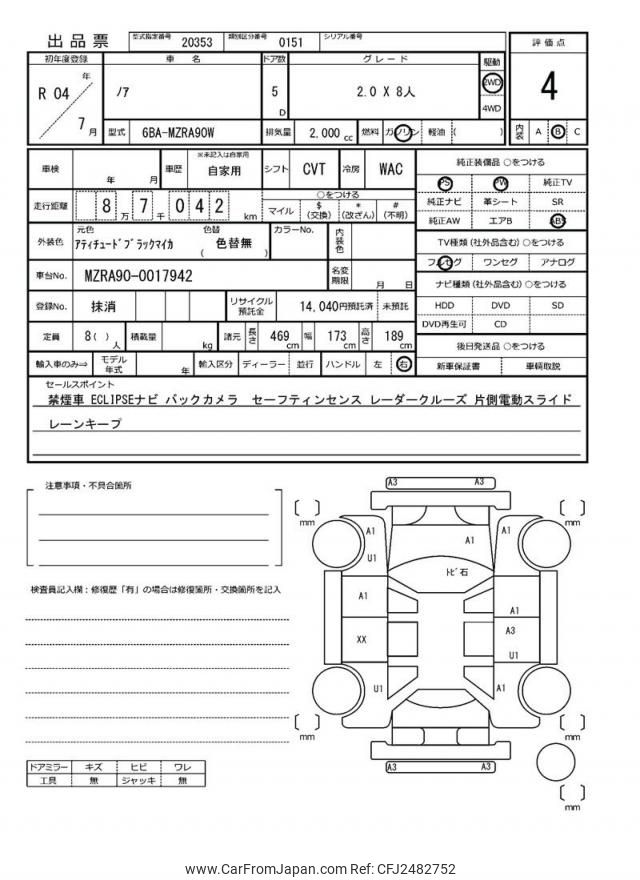 出品票 型式指定番号 20353 類別区分番号 0151 シリアル番号
初年度登録 車 名 ドア数 グレード 駆動 評価点
R 04 年 7 月 ノア 5 D 2.0 X 8人 2WD 4WD 4
型式 6BA-MZRA90W 排気量 2,000 cc 燃料 ガソリン 軽油 ( ) 内装 A B C
車検 年 月 車歴 ※未記入は自家用 自家用 シフト CVT 冷房 WAC
走行距離 8 万 7 千 0 4 2 km ○をつける マイル $ (交換) * (改ざん) # (不明)
外装色 元色 アティチュードブラックマイカ 色替 ( 色替無 ) カラーNo. 内装色
車台No. MZRA90-0017942 名変期限 月 日
登録No. 抹消 リサイクル預託金 14,040円預託済 未預託
定員 8( ) 人 積載量 kg 諸元 長さ 469 cm 幅 173 cm 高さ 189 cm
輸入車のみ⇒ モデル年式 年 輸入区分 ディーラー 並行 ハンドル 左 右
純正装備品 ○をつける
PS PW 純正TV
純正ナビ 革シート SR
純正AW エアB ABS
TV種類 (社外品含む) ○をつける
フルセグ ワンセグ アナログ
ナビ種類 (社外品含む) ○をつける
HDD DVD SD
DVD再生可 CD
後日発送品 ○をつける
新車保証書 車輌取説
セールスポイント
禁煙車 ECLIPSEナビ バックカメラ セーフティンセンス レーダークルーズ 片側電動スライド
レーンキープ
注意事項・不具合箇所
検査員記入欄：修復歴「有」の場合は修復箇所・交換箇所を記入
A3 A3
mm mm
A1 A1 A1
U1
トビ石
A1 A1
XX A3
U1
U1 A1
mm mm
A3 A3
mm
ドアミラー キズ ヒビ ワレ
工具 無 ジャッキ 無
www.CarFromJapan.com Ref: CFJ2482752